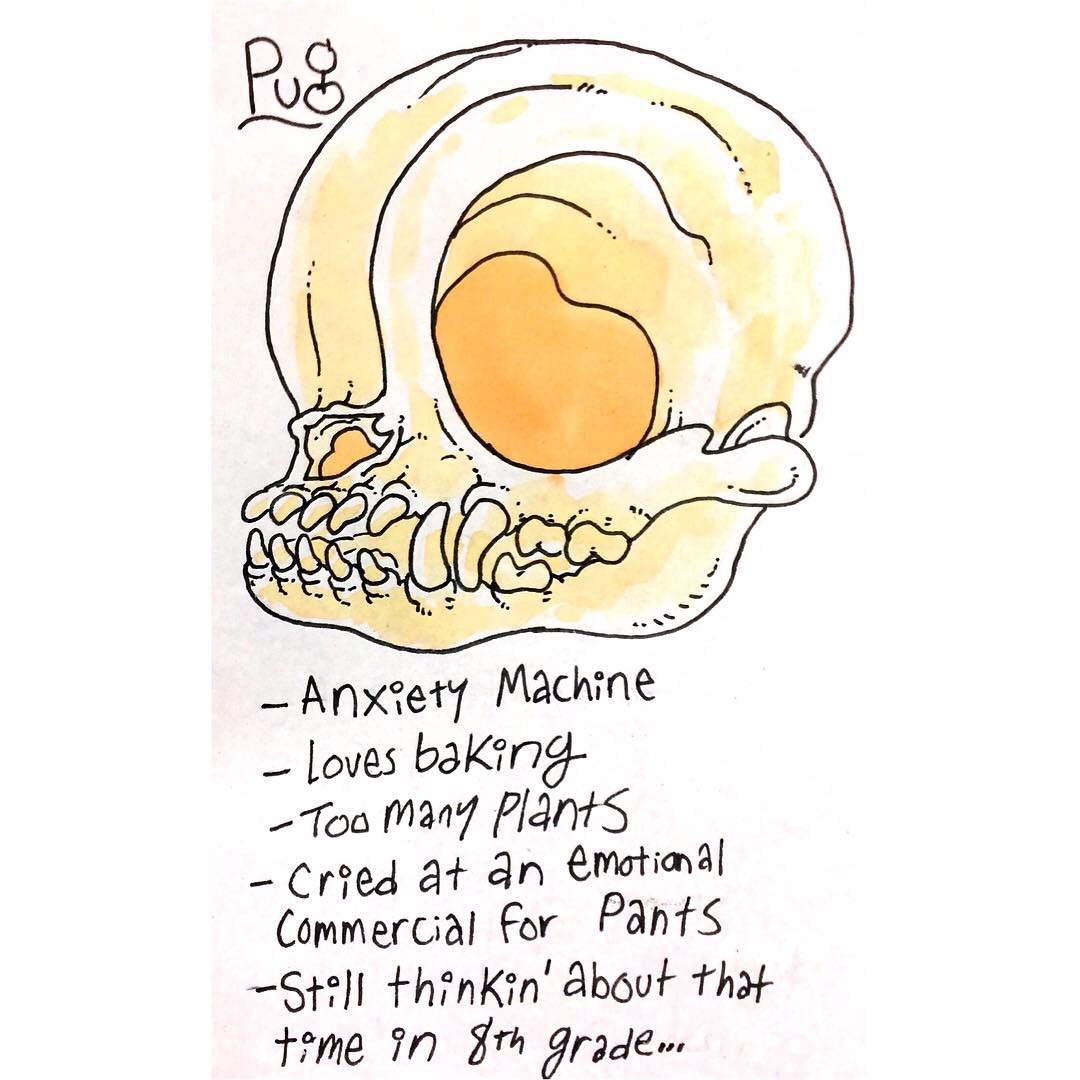 Pug
- Anxiety Machine
- Loves baking
- Too many Plants
- Cried at an emotional
Commercial for Pants
- Still thinkin' about that
time in 8th grade...